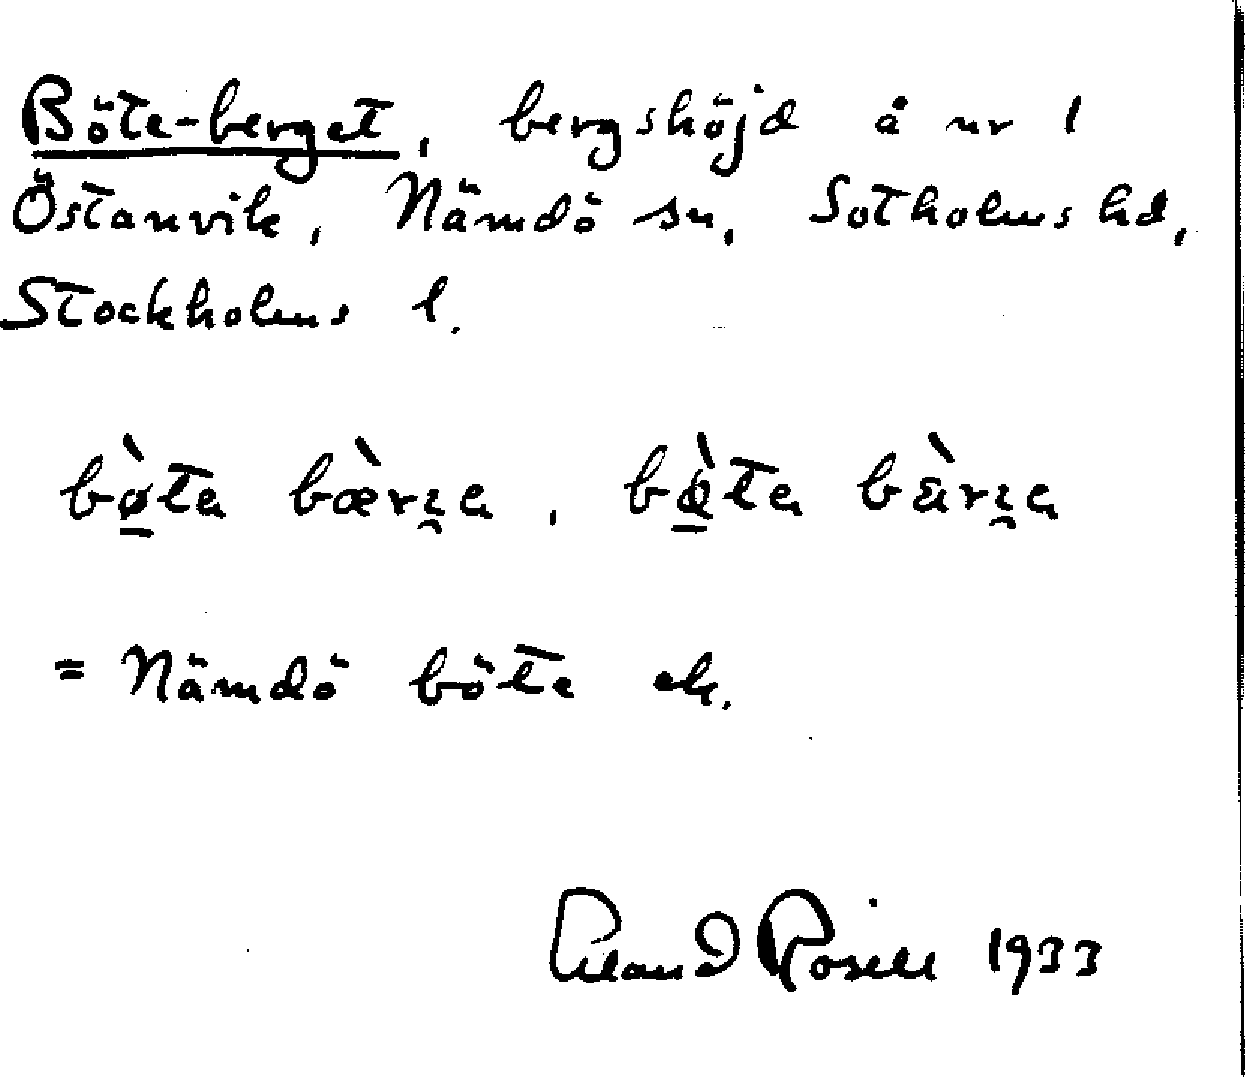 Böte-berget, bergshöjd å nr 1
Östanvik, Nämdö sn, Sotholms hd,
Stockholms l.
bø̲̀ta bæ̀rɩ̯a, bø̲̀ta bàrɩ̯a
= Nämdö böte ek.
Erland Rosell 1933